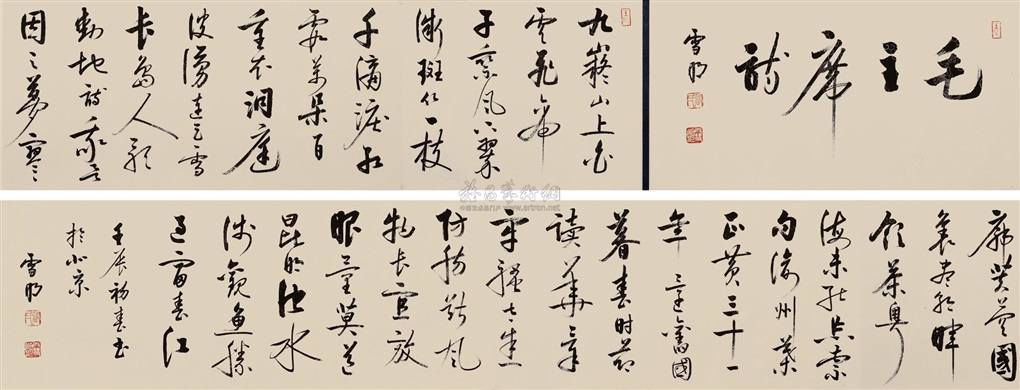 毛主席詩
雪明
九嶷山上白
雲飛帝
子乘風下翠
微斑竹一枝
千滴淚紅
霞萬朵百
重衣洞庭
波湧連天雪
长岛人歌
動地詩我欲
因之夢寥
廓芙蓉國
裏盡朝暉
飲茶粵
海未能忘索
句渝州葉
正黄三十一
年還舊國
时節
讀華章
牢騷太盛
防腸斷風
物長宜放
眼量莫道
昆明池水
淺觀魚勝
過富春江
壬辰初春书
於北京
雪明